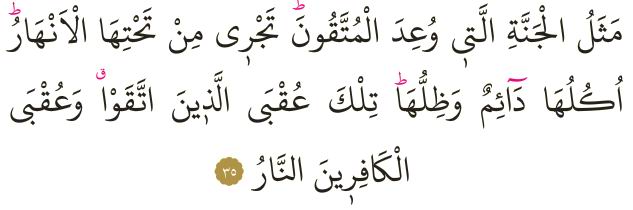 مَثَلُ الْجَنَّةِ الَّت۪ي وُعِدَ الْمُتَّقُونَۜ تَجْر۪ي مِنْ تَحْتِهَا الْاَنْهَارُۜ
اُكُلُهَا دَٓائِمٌ وَظِلُّهَاۜ تِلْكَ عُقْبَى الَّذ۪ينَ اتَّقَوْاۗ وَعُقْبَى
الْكَافِر۪ينَ النَّارُ ٣٥